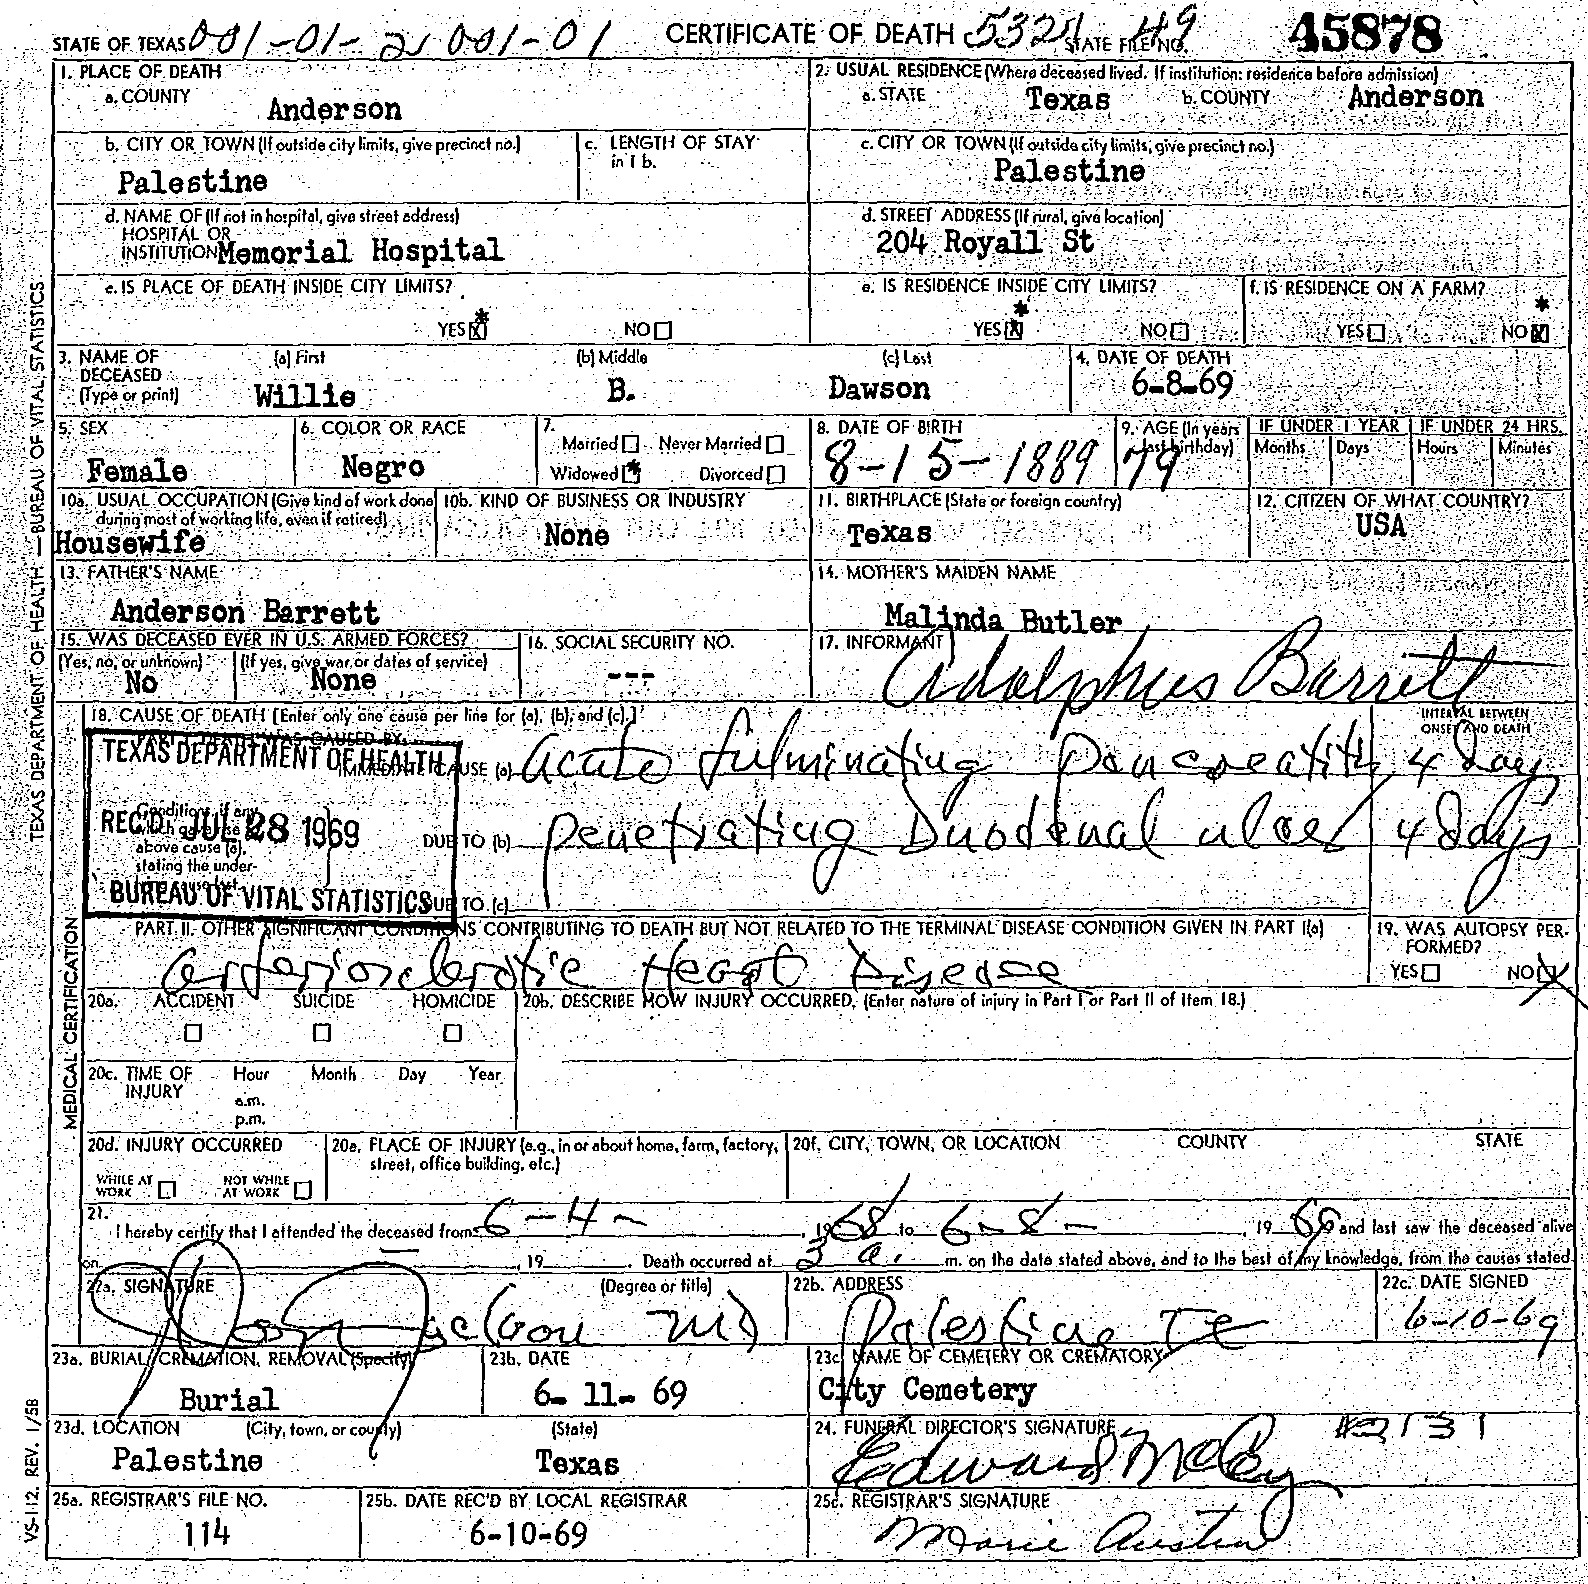 STATE OF TEXAS 001-01-21 001-01 CERTIFICATE OF DEATH 5321 STATE FILE NO. 49 45878
1. PLACE OF DEATH
a. COUNTY Anderson
2. USUAL RESIDENCE (Where deceased lived. If institution: residence before admission)
a. STATE Texas b. COUNTY Anderson
b. CITY OR TOWN (If outside city limits, give precinct no.) Palestine
c. LENGTH OF STAY in 1 b.
c. CITY OR TOWN (If outside city limits, give precinct no.) Palestine
d. NAME OF (If not in hospital, give street address)
HOSPITAL OR
INSTITUTION Memorial Hospital
d. STREET ADDRESS (If rural, give location)
204 Royall St
e. IS PLACE OF DEATH INSIDE CITY LIMITS?
YES X NO
e. IS RESIDENCE INSIDE CITY LIMITS?
YES X NO
f. IS RESIDENCE ON A FARM?
YES NO X
3. NAME OF DECEASED (Type or print)
(a) First (b) Middle (c) Last
Willie B. Dawson
4. DATE OF DEATH
6-8-69
5. SEX
Female
6. COLOR OR RACE
Negro
7. Married Never Married
Widowed * Divorced
8. DATE OF BIRTH
8-15-1889
9. AGE (In years last birthday)
79
IF UNDER 1 YEAR IF UNDER 24 HRS.
Months Days Hours Minutes
10a. USUAL OCCUPATION (Give kind of work done during most of working life, even if retired)
Housewife
10b. KIND OF BUSINESS OR INDUSTRY
None
11. BIRTHPLACE (State or foreign country)
Texas
12. CITIZEN OF WHAT COUNTRY?
USA
13. FATHER'S NAME
Anderson Barrett
14. MOTHER'S MAIDEN NAME
Malinda Butler
15. WAS DECEASED EVER IN U.S. ARMED FORCES?
(Yes, no, or unknown) (If yes, give war or dates of service)
No None
16. SOCIAL SECURITY NO.
---
17. INFORMANT
Adolphus Barrett
18. CAUSE OF DEATH [Enter only one cause per line for (a), (b), and (c).]
INTERVAL BETWEEN ONSET AND DEATH
PART I. DEATH WAS CAUSED BY:
IMMEDIATE CAUSE (a) Acute fulminating Pancreatitis 4 days
Conditions, if any, which gave rise to above cause (a), stating the under-lying cause last.
DUE TO (b) Penetrating Duodenal ulcer 4 days
DUE TO (c)
TEXAS DEPARTMENT OF HEALTH
REC'D JUL 28 1969
BUREAU OF VITAL STATISTICS
PART II. OTHER SIGNIFICANT CONDITIONS CONTRIBUTING TO DEATH BUT NOT RELATED TO THE TERMINAL DISEASE CONDITION GIVEN IN PART I(a)
Arteriosclerotic Heart Disease
19. WAS AUTOPSY PER-FORMED?
YES NO X
20a. ACCIDENT SUICIDE HOMICIDE
20b. DESCRIBE HOW INJURY OCCURRED. (Enter nature of injury in Part I or Part II of item 18.)
20c. TIME OF INJURY Hour Month Day Year
a.m.
p.m.
20d. INJURY OCCURRED
WHILE AT WORK NOT WHILE AT WORK
20e. PLACE OF INJURY (e.g., in or about home, farm, factory, street, office building, etc.)
20f. CITY, TOWN, OR LOCATION COUNTY STATE
21. I hereby certify that I attended the deceased from 6-4- 1968 to 6-8- 1969 and last saw the deceased alive
on 19 Death occurred at 3 a. m. on the date stated above, and to the best of my knowledge, from the causes stated.
22a. SIGNATURE (Degree or title)
MD
22b. ADDRESS
Palestine Te
22c. DATE SIGNED
6-10-69
23a. BURIAL, CREMATION, REMOVAL (Specify)
Burial
23b. DATE
6-11-69
23c. NAME OF CEMETERY OR CREMATORY
City Cemetery
23d. LOCATION (City, town, or county) (State)
Palestine Texas
24. FUNERAL DIRECTOR'S SIGNATURE #2131
Edward McCoy
25a. REGISTRAR'S FILE NO.
114
25b. DATE REC'D BY LOCAL REGISTRAR
6-10-69
25c. REGISTRAR'S SIGNATURE
Marie Austin
TEXAS DEPARTMENT OF HEALTH — BUREAU OF VITAL STATISTICS
MEDICAL CERTIFICATION
VS-112. REV. 1/58